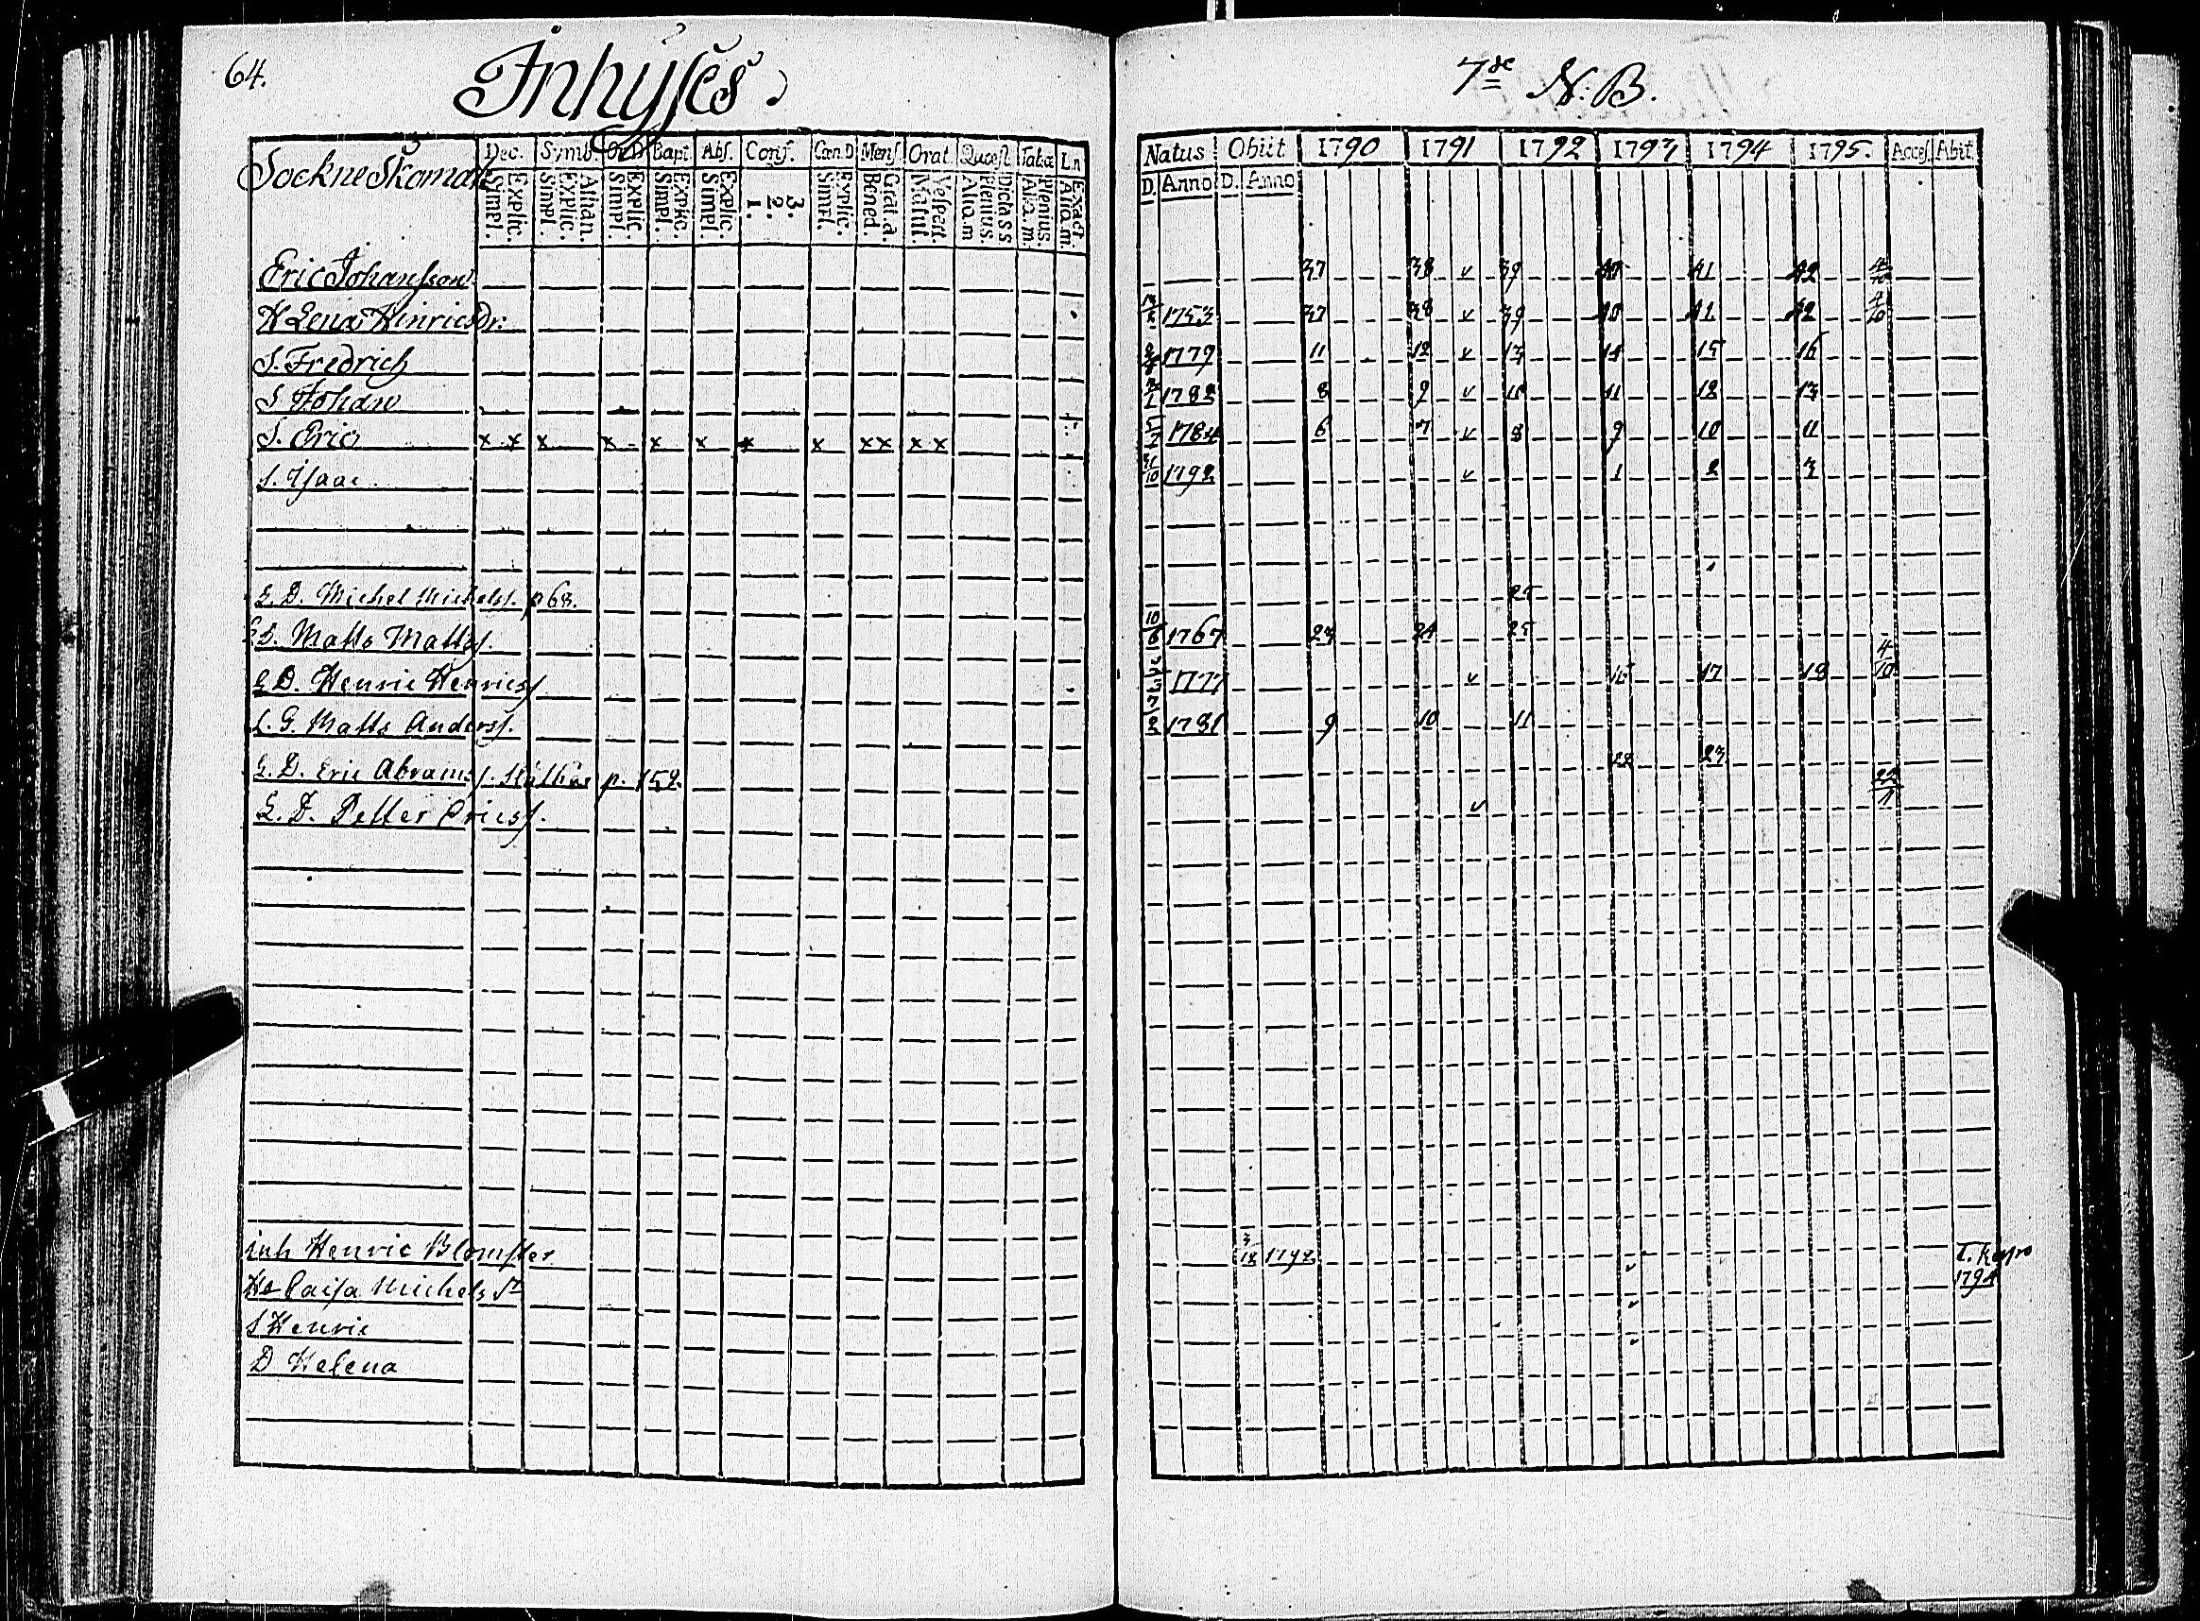 64. Inhyses.
Sockne Skomak.
Dec. Symb. Or.D Bapt Abs. Conf. Cœn.D Mens Orat. Quæst. Tab.œ Ln
Simpl. Explic. Simpl. Explic. Athan. Simpl. Explic. Simpl. Explic. Simpl. Explic. 1. 2. 3. Simpl. Explic. Bened. Grat.a. Matut. Vespert. Aliq.m Plenius. Dicta S S Aliq.m. Plenius. Aliq.m. Exact
Eric Johansson
H Lena HinricsDr.
S. Fredrich
S Johan
S. Eric x x x x x x x x x x x x
S. Isaac
L. D. Michel Michels. p 68.
Matts Matts.
L D. Henric Henrics.
L. G. Matts Anders.
L. D. Eric Abrams. p. 152.
L. D. Petter Erics.
inh Henric Blomster
Caisa Michels Dr
S Henric
D Helena
7de N:B.
Natus Obiit 1790 1791 1792 1793 1794 1795. Acces. Abit
D. Anno D. Anno
37 38 v 39 40 41 42 4/10
1753 37 38 v 39 40 41 42 4/10
1779 11 12 v 13 14 15 16
1782 8 9 v 10 11 12 13
5/7 1784 6 7 v 8 9 10 11
31/10 1792 v 1 2 3
25
10/6 1767 23 24 25
1777 v 16 17 18 4/10
7/2 1781 9 10 11
22 23
v
3/12 1792 v
1794
v
v